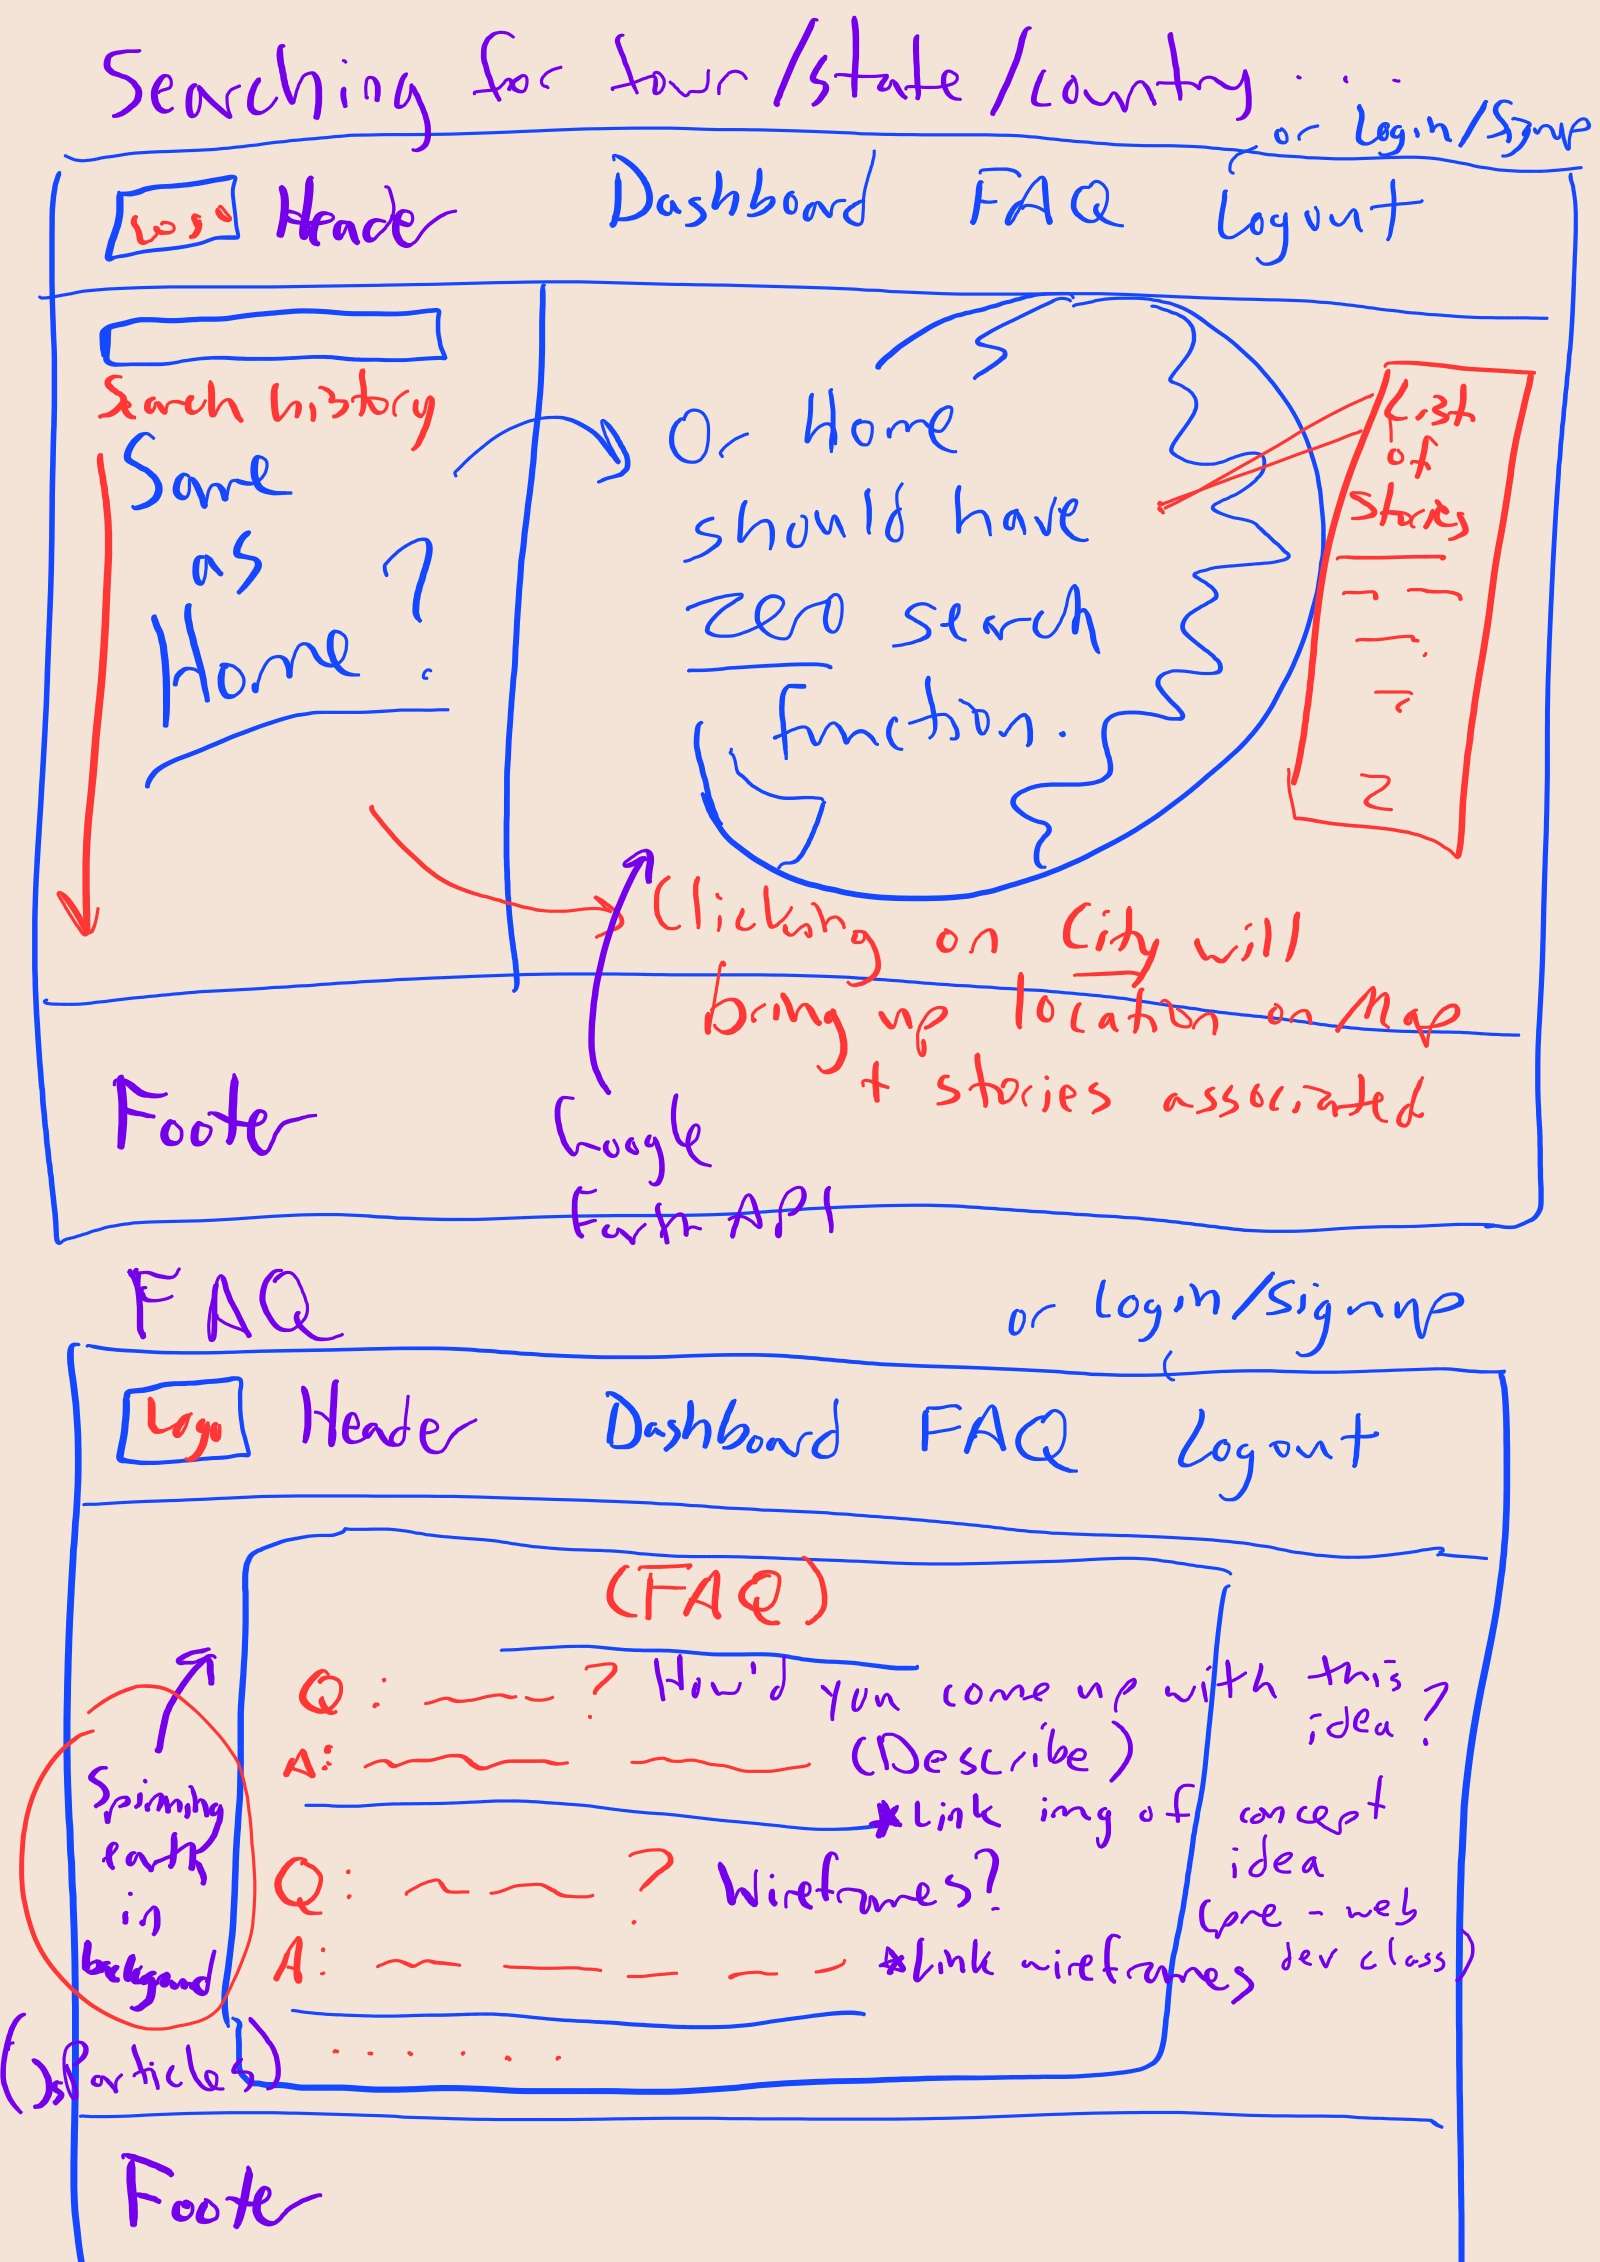 Searching for town/state/country . . .
or Login/Signup
Logo Header Dashboard FAQ Logout
Search history
Same
as
Home?
Or Home
should have
zero search
function.
List
of
stories
Clicking on City will
bring up location on Map
+ stories associated
Google
Earth API
Footer
FAQ
or Login/Signup
Logo Header Dashboard FAQ Logout
(FAQ)
Q: ? How'd you come up with this
idea?
A: (Describe)
*Link img of concept
idea
(pre-web
dev class)
Q: ? Wireframes?
A: *Link wireframes
. . . . . .
Spinning
earth
in
background
(jsParticles)
Footer